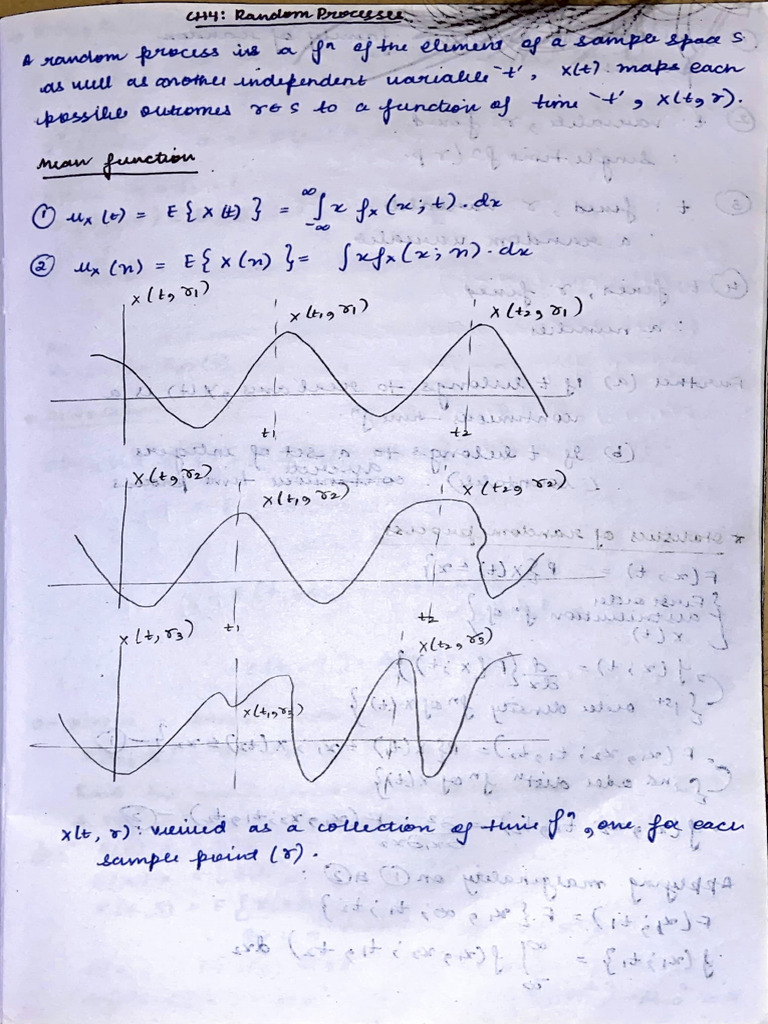 CH4: Random Processes
A random process is a fⁿ of the element of a sample space S
as well as another independent variable 't', X(t) maps each
possible outcomes r ∈ S to a function of time 't', X(t, r).
Mean function
① μx (t) = E{X(t)} = ∫_{-∞}^{∞} x fx(x; t) · dx
② μx (n) = E{X(n)} = ∫x fx(x; n) · dx
X(t, r1) X(t1, r1) X(t2, r1)
t1 t2
X(t, r2) X(t1, r2) X(t2, r2)
t1 t2
X(t, r3) X(t2, r3)
X(t1, r3)
X(t, r): viewed as a collection of time fⁿ, one for each
sample point (r).